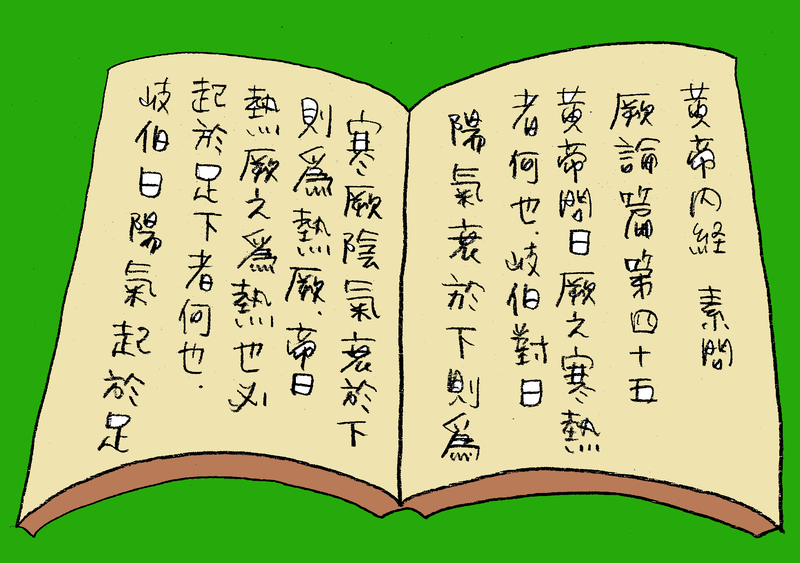 黄帝内経 素問
厥論篇第四十五
黄帝問曰厥之寒熱
者何也.岐伯對曰
陽氣衰於下則爲
寒厥陰氣衰於下
則爲熱厥.帝曰
熱厥之爲熱也必
起於足下者何也.
岐伯曰陽氣起於足